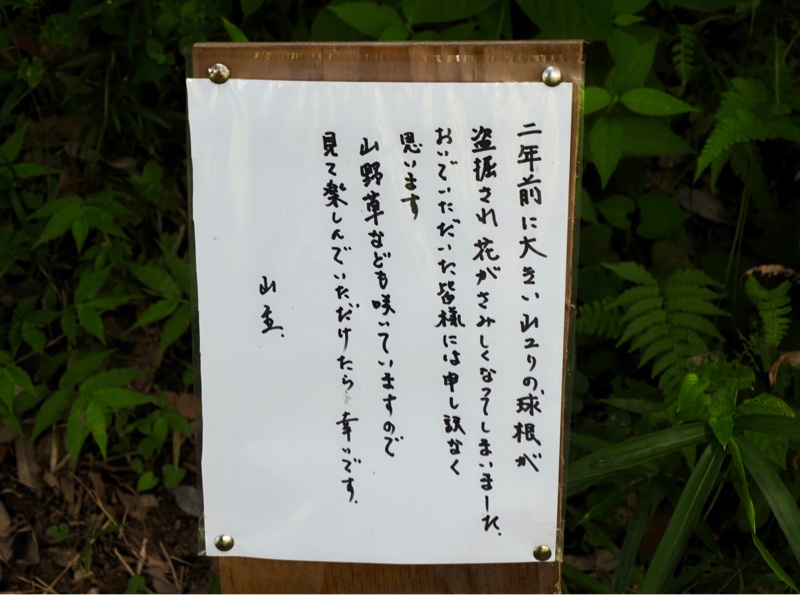 二年前に大きい山ユリの球根が
盗掘され花がさみしくなってしまいました.
おいでいただいた皆様には申し訳なく
思います
山野草なども咲いていますので
見て楽しんでいただけたら幸いです.
山主.